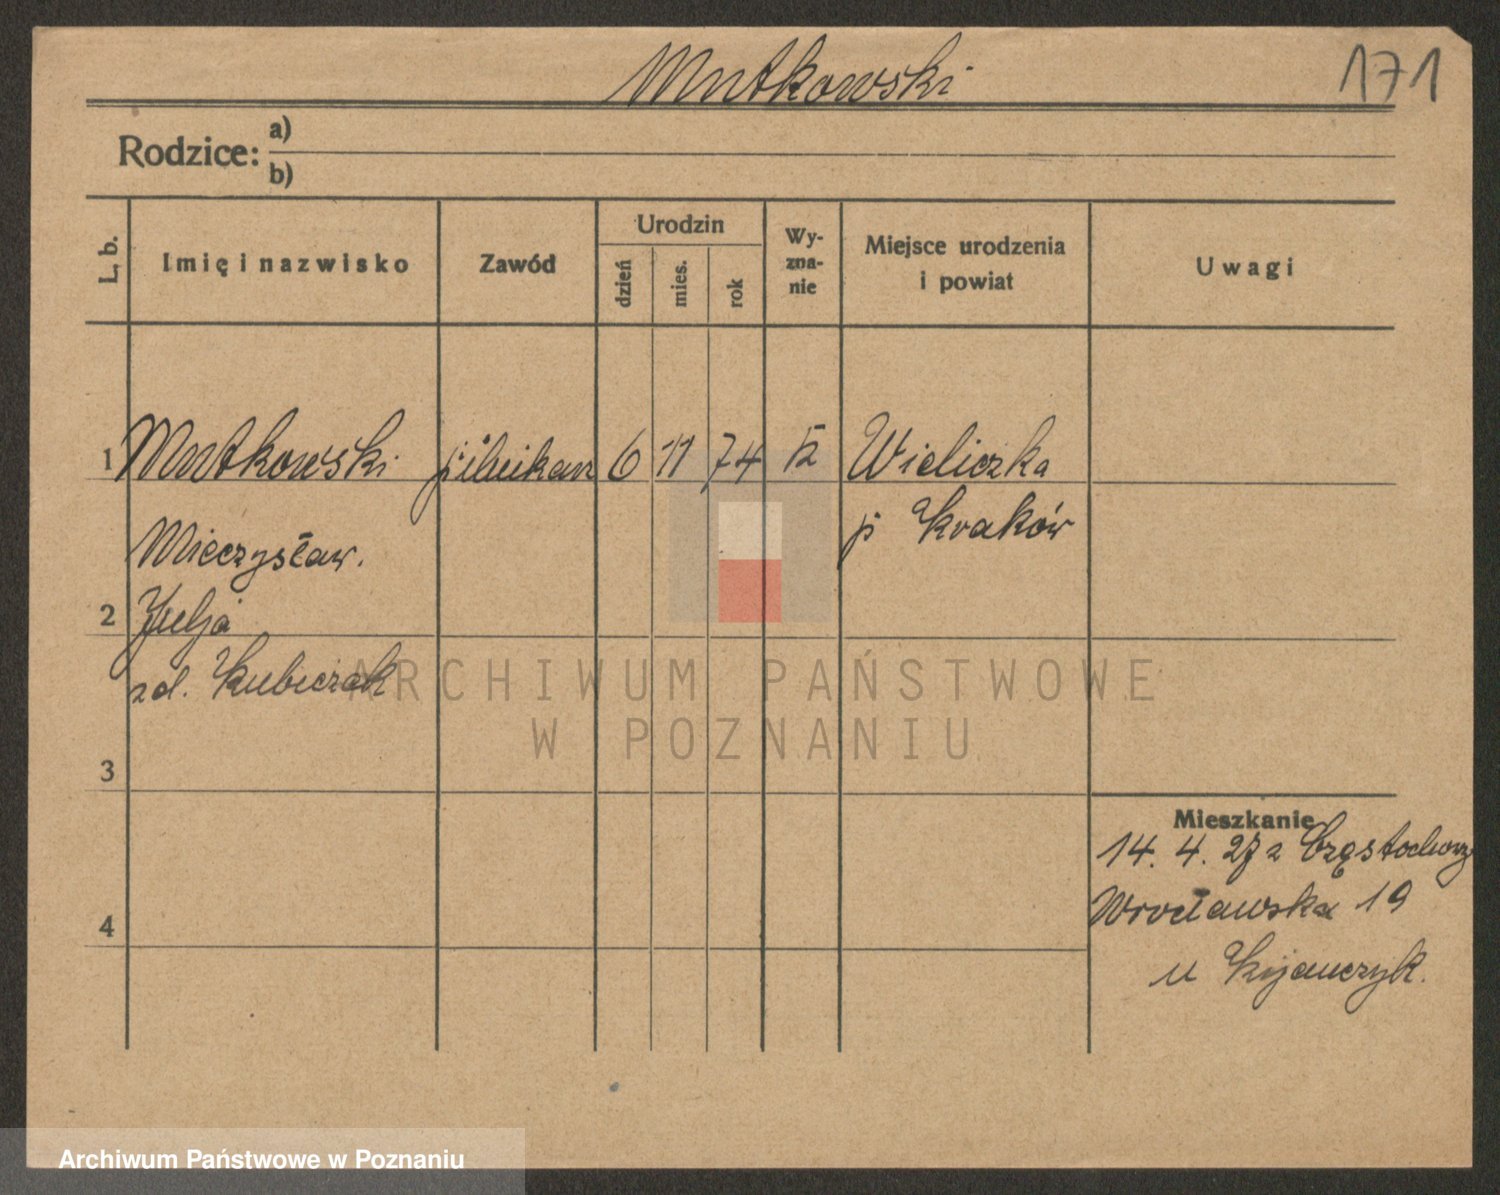 Mutkowski
171
Rodzice: a)
b)
L, b.
Imię i nazwisko
Zawód
Urodzin
dzień
mies.
rok
Wy-
zna-
nie
Miejsce urodzenia
i powiat
Uwagi
1 Mutkowski pilnikarz 6 11 74 Wieliczka
p Kraków
Mieczysław.
2 Julja
zd. Kubiczak
ARCHIWUM PAŃSTWOWE
W POZNANIU
3
Mieszkanie
14. 4. 27 z Częstochowy
Wrocławska 19
4
u Kijanczyk.
Archiwum Państwowe w Poznaniu